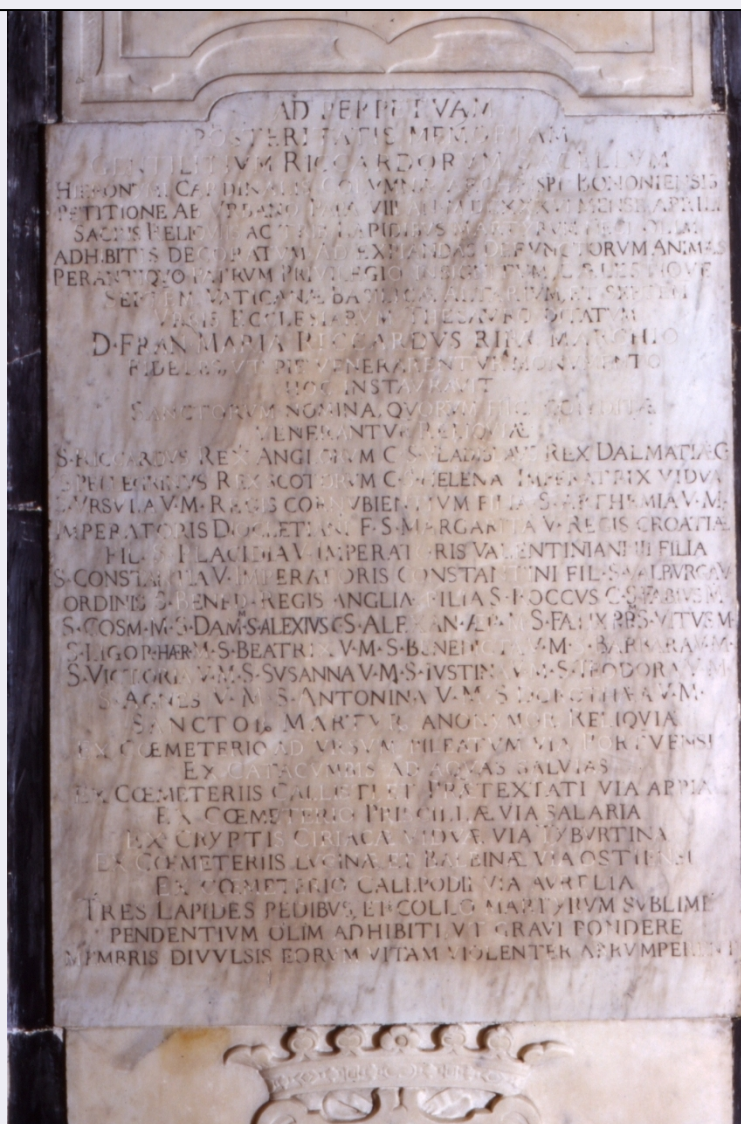 AD PERPETVAM
POSTERITATIS MEMORIAM
GENTILITIVM RICCARDORVM SACELLVM
HIERONYMI CARDINALIS COLVMNA BONONIENSIS
PETITIONE AB VRBANO PAPA VIII MENSE APRILI
SACRIS RELIQVIIS AC LAPIDIBVS
ADHIBITIS DECORATVM AD EXPIANDAS DEFVNCTORVM ANIMAS
PERANTIQVO PATRVM PRIVILEGIO
SEPTEM VATICANÆ BASILICÆ ALTARIVM ET
VRBIS ECCLESIARVM THESAVRO DITATVM
D·FRAN MARIA RICCARDVS MARCHIO
FIDELES VT PIE VENERARENTVR MONVMENTO
HOC INSTAVRAVIT
SANCTORVM NOMINA, QVORVM HIC CONDITÆ
VENERANTVR RELIQVIÆ
S·RICCARDVS REX ANGLORVM C·S·LADISLAVS REX DALMATIÆ C
S·PELLEGRINVS REX SCOTORVM C·S·HELENA IMPERATRIX VIDVA
S·VRSVLA V·M·REGIS CORNVBIENSIVM FILIA·S·ARTHEMIA V·M·
IMPERATORIS DIOCLETIANI F·S·MARGARITA V·REGIS CROATIÆ
FIL·S·PLACIDIA V·IMPERATORIS VALENTINIANI III FILIA
S·CONSTANTIA V·IMPERATORIS CONSTANTINI FIL·S·VALBVRGA V
ORDINIS S·BENED·REGIS ANGLIÆ FILIA S·ROCCVS C·S·FABIVS M·
S·COSM·M·S·DAM·S·ALEXIVS C·S·ALEXAN·PP·M·S·FALIX PP·S·VITVS M·
S·LIGOR·HÆR M·S·BEATRIX V·M·S·BENEDICTA V·M·S·BARBARA V·M·
S·VICTORIA V·M·S·SVSANNA V·M·S·IVSTINA V·M·S·TEODORA V·M·
S·AGNES V·M·S·ANTONINA V·M·S·DOROTHEA V·M·
SANCTOR·MARTYR·ANONYMOR·RELIQVIÆ
EX CŒMETERIO AD VRSVM PILEATVM VIA PORTVENSI
EX CATACVMBIS AD AQVAS SALVIAS
EX CŒMETERIIS CALLISTI ET PRÆTEXTATI VIA APPIA
EX CŒMETERIO PRISCILLÆ VIA SALARIA
EX CRYPTIS CIRIACÆ VIDVÆ VIA TYBVRTINA
EX CŒMETERIIS LVCINÆ ET BALBINÆ VIA OSTIENSI
EX CŒMETERIO CALEPODII VIA AVRELIA
TRES LAPIDES PEDIBVS, ET COLLO MARTYRVM SVBLIME
PENDENTIVM OLIM ADHIBITI, VT GRAVI PONDERE
MEMBRIS DIVVLSIS EORVM VITAM VIOLENTER ABRVMPERENT